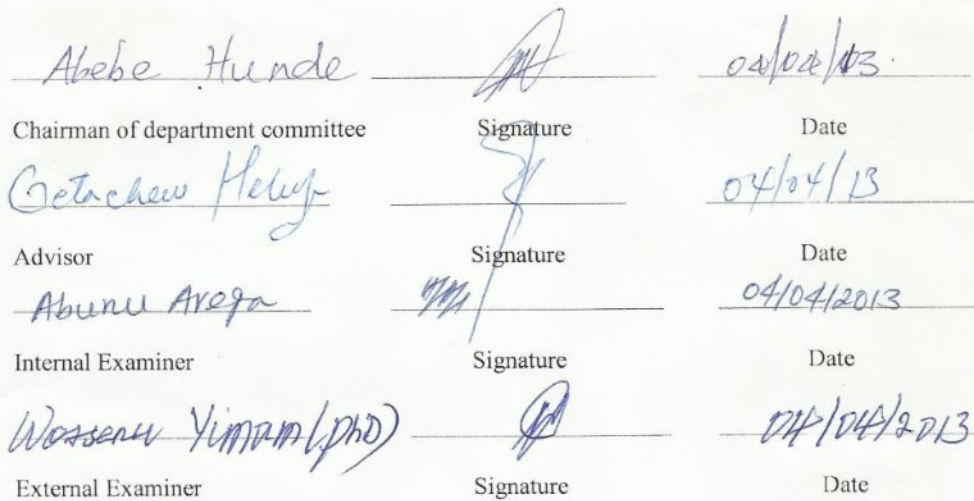 Abebe Hunde 04/04/13
Chairman of department committee Signature Date
Getachew 04/04/13
Advisor Signature Date
Abunu Arega 04/04/2013
Internal Examiner Signature Date
Wossenu Yimam (PhD) 04/04/2013
External Examiner Signature Date